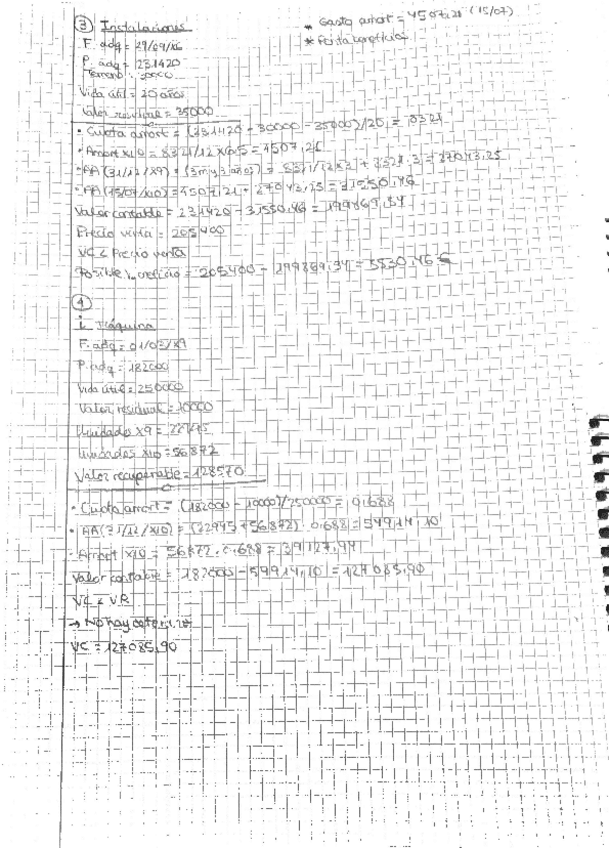 ③ Instalaciones
* Gasto amort = 4507,21 (15/07)
F. adq = 29/09/X6
P. adq = 231420
Vida útil = 20 años
Valor residual = 35000
• Cuota amort = (231420 - 30000 - 35000)/20 = 8321
• Amort X10 = 8321/12 × 6,5 = 4507,21
• AA (31/12/X9) = (3m y 3 años) = 8321/12×3) + 8321.3 = 27043,25
• AA (15/07/X10) = 4507,21 + 27043,25 = 31550,46
Valor contable = 231420 - 31550,46 = 199869,54
Precio venta = 205400
VC < Precio venta
Posible beneficio = 205400 - 199869,54 = 5530,46 €
④
i. Máquina
F. adq = 01/07/X9
P. adq = 182000
Vida útil = 250000
Valor residual = 10000
Unidades X9 =
Unidades X10 = 56872
Valor recuperable = 128570
• Cuota amort = (182000 - 10000)/250000 = 0,688
• AA (31/12/X10) = (22945 + 56872) . 0,688 = 54914,10
• Amort X10 = 56872 . 0,688 = 39127,94
Valor contable = 182000 - 54914,10 = 127085,90
VC < VR
→ No hay deterioro
VC = 127085,90